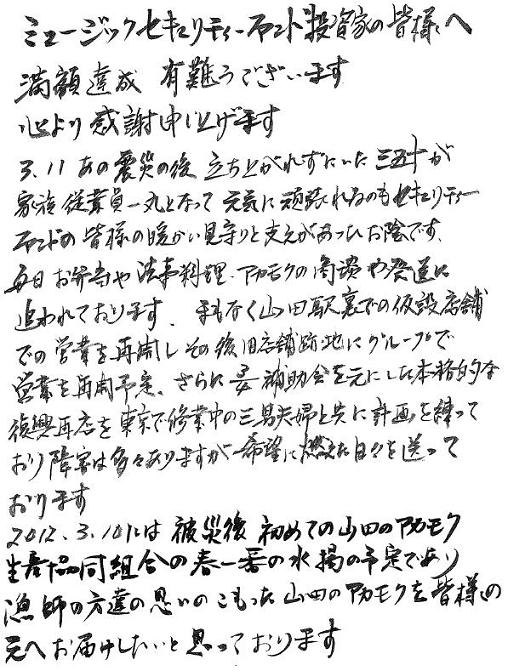 ミュージックセキュリティーファンド投資家の皆様へ
満額達成 有難うございます
心より感謝申し上げます
3.11あの震災の後 立ち上がれずにいた 三五十が
家族 従業員一丸となって 元気に頑張れるのもセキュリティー
ファンドの皆様の暖かい見守りと支えがあったお陰です。
毎日 お弁当や 法事料理・アカモクの 発送に
追われております。 まもなく山田駅裏での仮設店舗
での営業を再開し その後 旧店舗跡地にグループで
営業を再開予定、さらに 補助金を元にした本格的な
復興再店を東京で修業中の三男夫婦と共に計画を練って
おり 障害は多々ありますが 希望に燃えた日々を送って
おります
2012.3.10には 被災後 初めての山田のアカモク
生産協同組合の春一番の水揚の予定であり
漁師の方達の思いのこもった 山田のアカモクを皆様の
元へお届けしたいと思っております